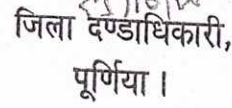 जिला दण्डाधिकारी,
पूर्णिया ।